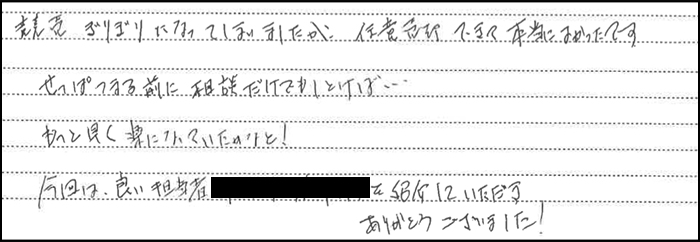 競売ぎりぎりになってしまいましたが、任意売却できて本当によかったです
せっぱつまる前に相談だけでもしとけば…
もっと早く楽になっていたかなと!
今回は、良い担当者を紹介していただき
ありがとうございました!